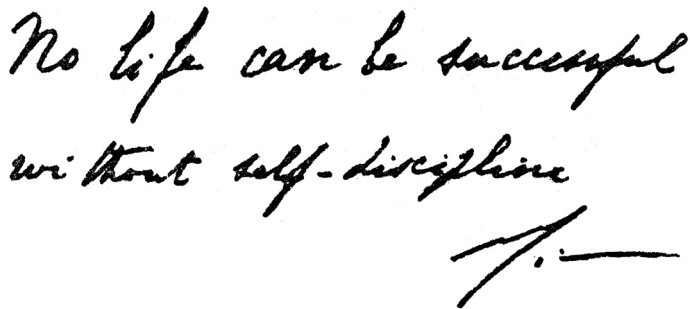 No life can be successful
without self-discipline